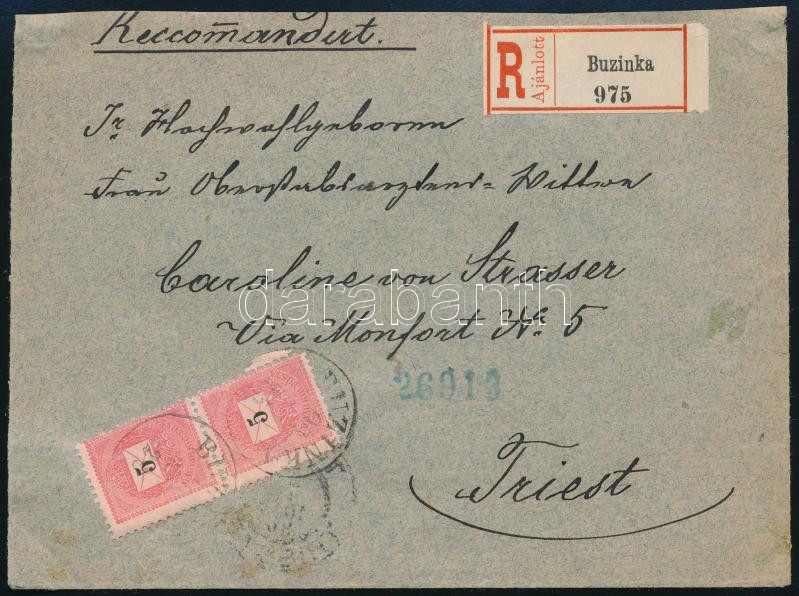 Reccomandirt.
R Ajánlott
Buzinka
975
Ir Hochwohlgeboren
Frau Oberstabsarztens-Wittwe
Caroline von Strasser
Via Monfort No 5
darabanth
26913
5 5
BUZINKA
Triest